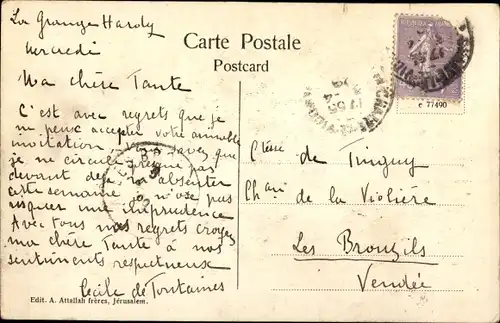 La Grange Hardy
Mercredi
Carte Postale
Postcard
Ma chère Tante
C'est avec regrets que je
ne peux accepter votre aimable
invitation vous savez que
je ne circule presque pas
devant déjà m'absenter
cette semaine je n'ose pas
risquer une imprudence
Avec tous mes regrets croyez
ma chère Tante à mes
sentiments respectueux
Cécile de Fontaines
Edit. A. Attallah frères, Jérusalem.
e 77490
Ctesse de Tinguy
Chau de la Violière
Les Brouzils
Vendée